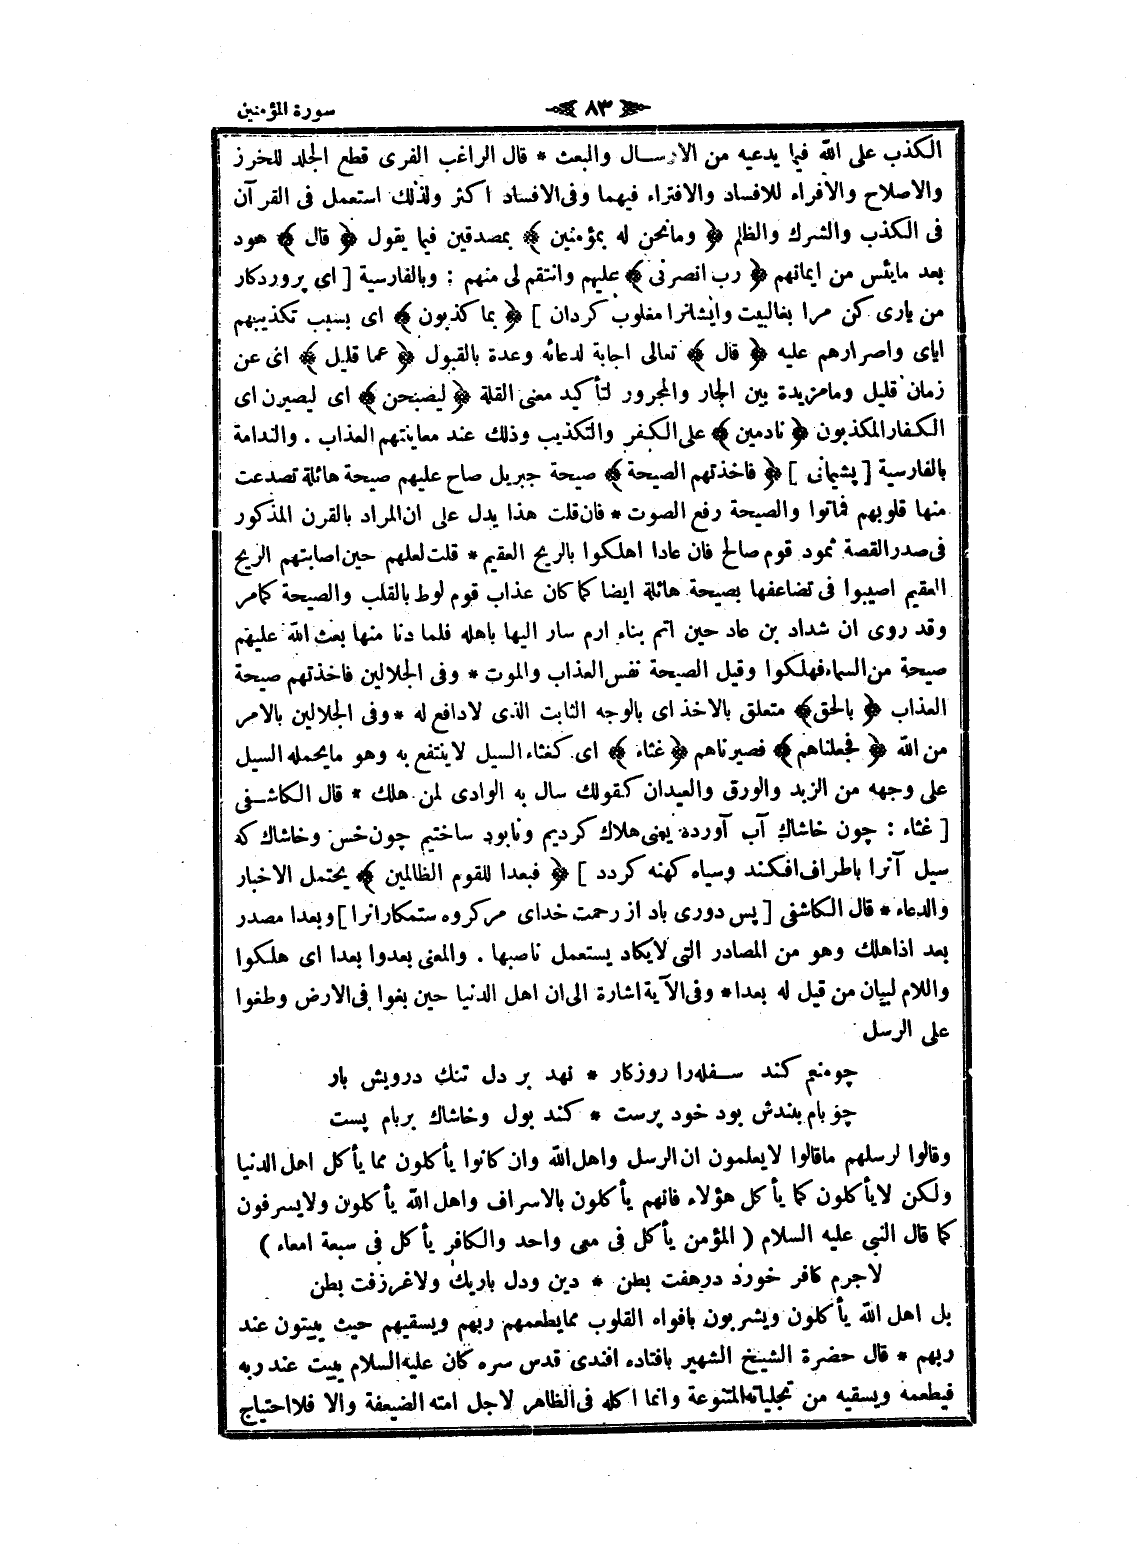 سورة المؤمنين
﴿ ٨٣ ﴾
الكذب على الله فيما يدعيه من الارسال والبعث * قال الراغب الفرى قطع الجلد للخرز
والاصلاح والافراء للافساد والافتراء فيهما وفى الافساد اكثر ولذلك استعمل فى القرآن
فى الكذب والشرك والظلم ﴿ ومانحن له بمؤمنين ﴾ بمصدقين فيما يقول ﴿ قال ﴾ هود
بعد مايئس من ايمانهم ﴿ رب انصرنى ﴾ عليهم وانتقم لى منهم : وبالفارسية [ اى پروردكار
من يارى كن مرا بغالبيت وايشانرا مغلوب كردان ] ﴿ بما كذبون ﴾ اى بسبب تكذيبهم
اياى واصرارهم عليه ﴿ قال ﴾ تعالى اجابة لدعائه وعدة بالقبول ﴿ عما قليل ﴾ اى عن
زمان قليل ومامزيدة بين الجار والمجرور لتأكيد معنى القلة ﴿ ليصبحن ﴾ اى ليصيرن اى
الكفار المكذبون ﴿ نادمين ﴾ على الكفر والتكذيب وذلك عند معاينتهم العذاب . والندامة
بالفارسية [ پشيمانى ] ﴿ فاخذتهم الصيحة ﴾ صيحة جبريل صاح عليهم صيحة هائلة تصدعت
منها قلوبهم فماتوا والصيحة رفع الصوت * فان قلت هذا يدل على ان المراد بالقرن المذكور
فى صدر القصة ثمود قوم صالح فان عادا اهلكوا بالريح العقيم * قلت لعلهم حين اصابتهم الريح
العقيم اصيبوا فى تضاعفها بصيحة هائلة ايضا كما كان عذاب قوم لوط بالقلب والصيحة كمامر
وقد روى ان شداد بن عاد حين اتم بناء ارم سار اليها باهله فلما دنا منها بعث الله عليهم
صيحة من السماء فهلكوا وقيل الصيحة نفس العذاب والموت * وفى الجلالين فاخذتهم صيحة
العذاب ﴿ بالحق ﴾ متعلق بالاخذ اى بالوجه الثابت الذى لادافع له * وفى الجلالين بالامر
من الله ﴿ فجعلناهم ﴾ فصيرناهم ﴿ غثاء ﴾ اى كغثاء السيل لاينتفع به وهو مايحمله السيل
على وجهه من الزبد والورق والعيدان كقولك سال به الوادى لمن هلك * قال الكاشفى
[ غثاء : چون خاشاك آب آورده يعنى هلاك كرديم ونابود ساختيم چون خس وخاشاك كه
سيل آنرا باطراف افكند وسياه كهنه كردد ] ﴿ فبعدا للقوم الظالمين ﴾ يحتمل الاخبار
والدعاء * قال الكاشفى [ پس دورى باد از رحمت خداى مركروه ستمكارانرا ] وبعدا مصدر
بعد اذاهلك وهو من المصادر التى لايكاد يستعمل ناصبها . والمعنى بعدوا بعدا اى هلكوا
واللام لبيان من قيل له بعدا * وفى الآية اشارة الى ان اهل الدنيا حين بغوا فى الارض وطغوا
على الرسل
چومنعم كند سفله را روزكار * نهد بر دل تنك درويش بار
چو بام بلندش بود خود پرست * كند بول وخاشاك بربام پست
وقالوا لرسلهم ماقالوا لايعلمون ان الرسل واهل الله وان كانوا يأكلون مما يأكل اهل الدنيا
ولكن لايأكلون كما يأكل هؤلاء فانهم يأكلون بالاسراف واهل الله يأكلون ولايسرفون
كما قال النبى عليه السلام ( المؤمن يأكل فى معى واحد والكافر يأكل فى سبعة امعاء )
لاجرم كافر خورد درهفت بطن * دين ودل باريك ولاغر زفت بطن
بل اهل الله يأكلون ويشربون بافواه القلوب ممايطعمهم ربهم ويسقيهم حيث يبيتون عند
ربهم * قال حضرة الشيخ الشهير بافتاده افندى قدس سره كان عليه السلام يبيت عند ربه
فيطعمه ويسقيه من تجلياته المتنوعة وانما اكله فى الظاهر لاجل امته الضعيفة والا فلا احتياج